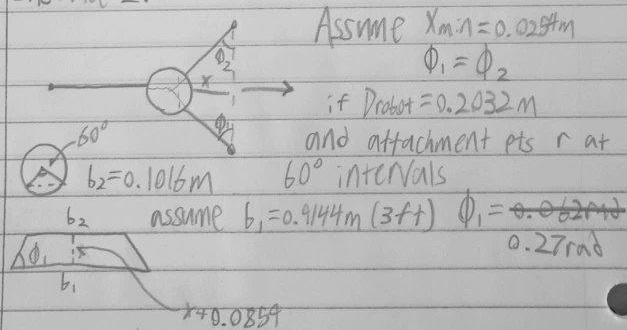 Assume Xmin=0.0254m
ϕ₁ = ϕ₂
ϕ₂
x
ϕ₁
if Drobot=0.2032m
and attachment pts r at
60° intervals
60°
b₂=0.1016m
assume b₁=0.9144m (3ft) ϕ₁=0.062rad
0.27rad
b₂
ϕ₁
x
b₁
x+0.0854